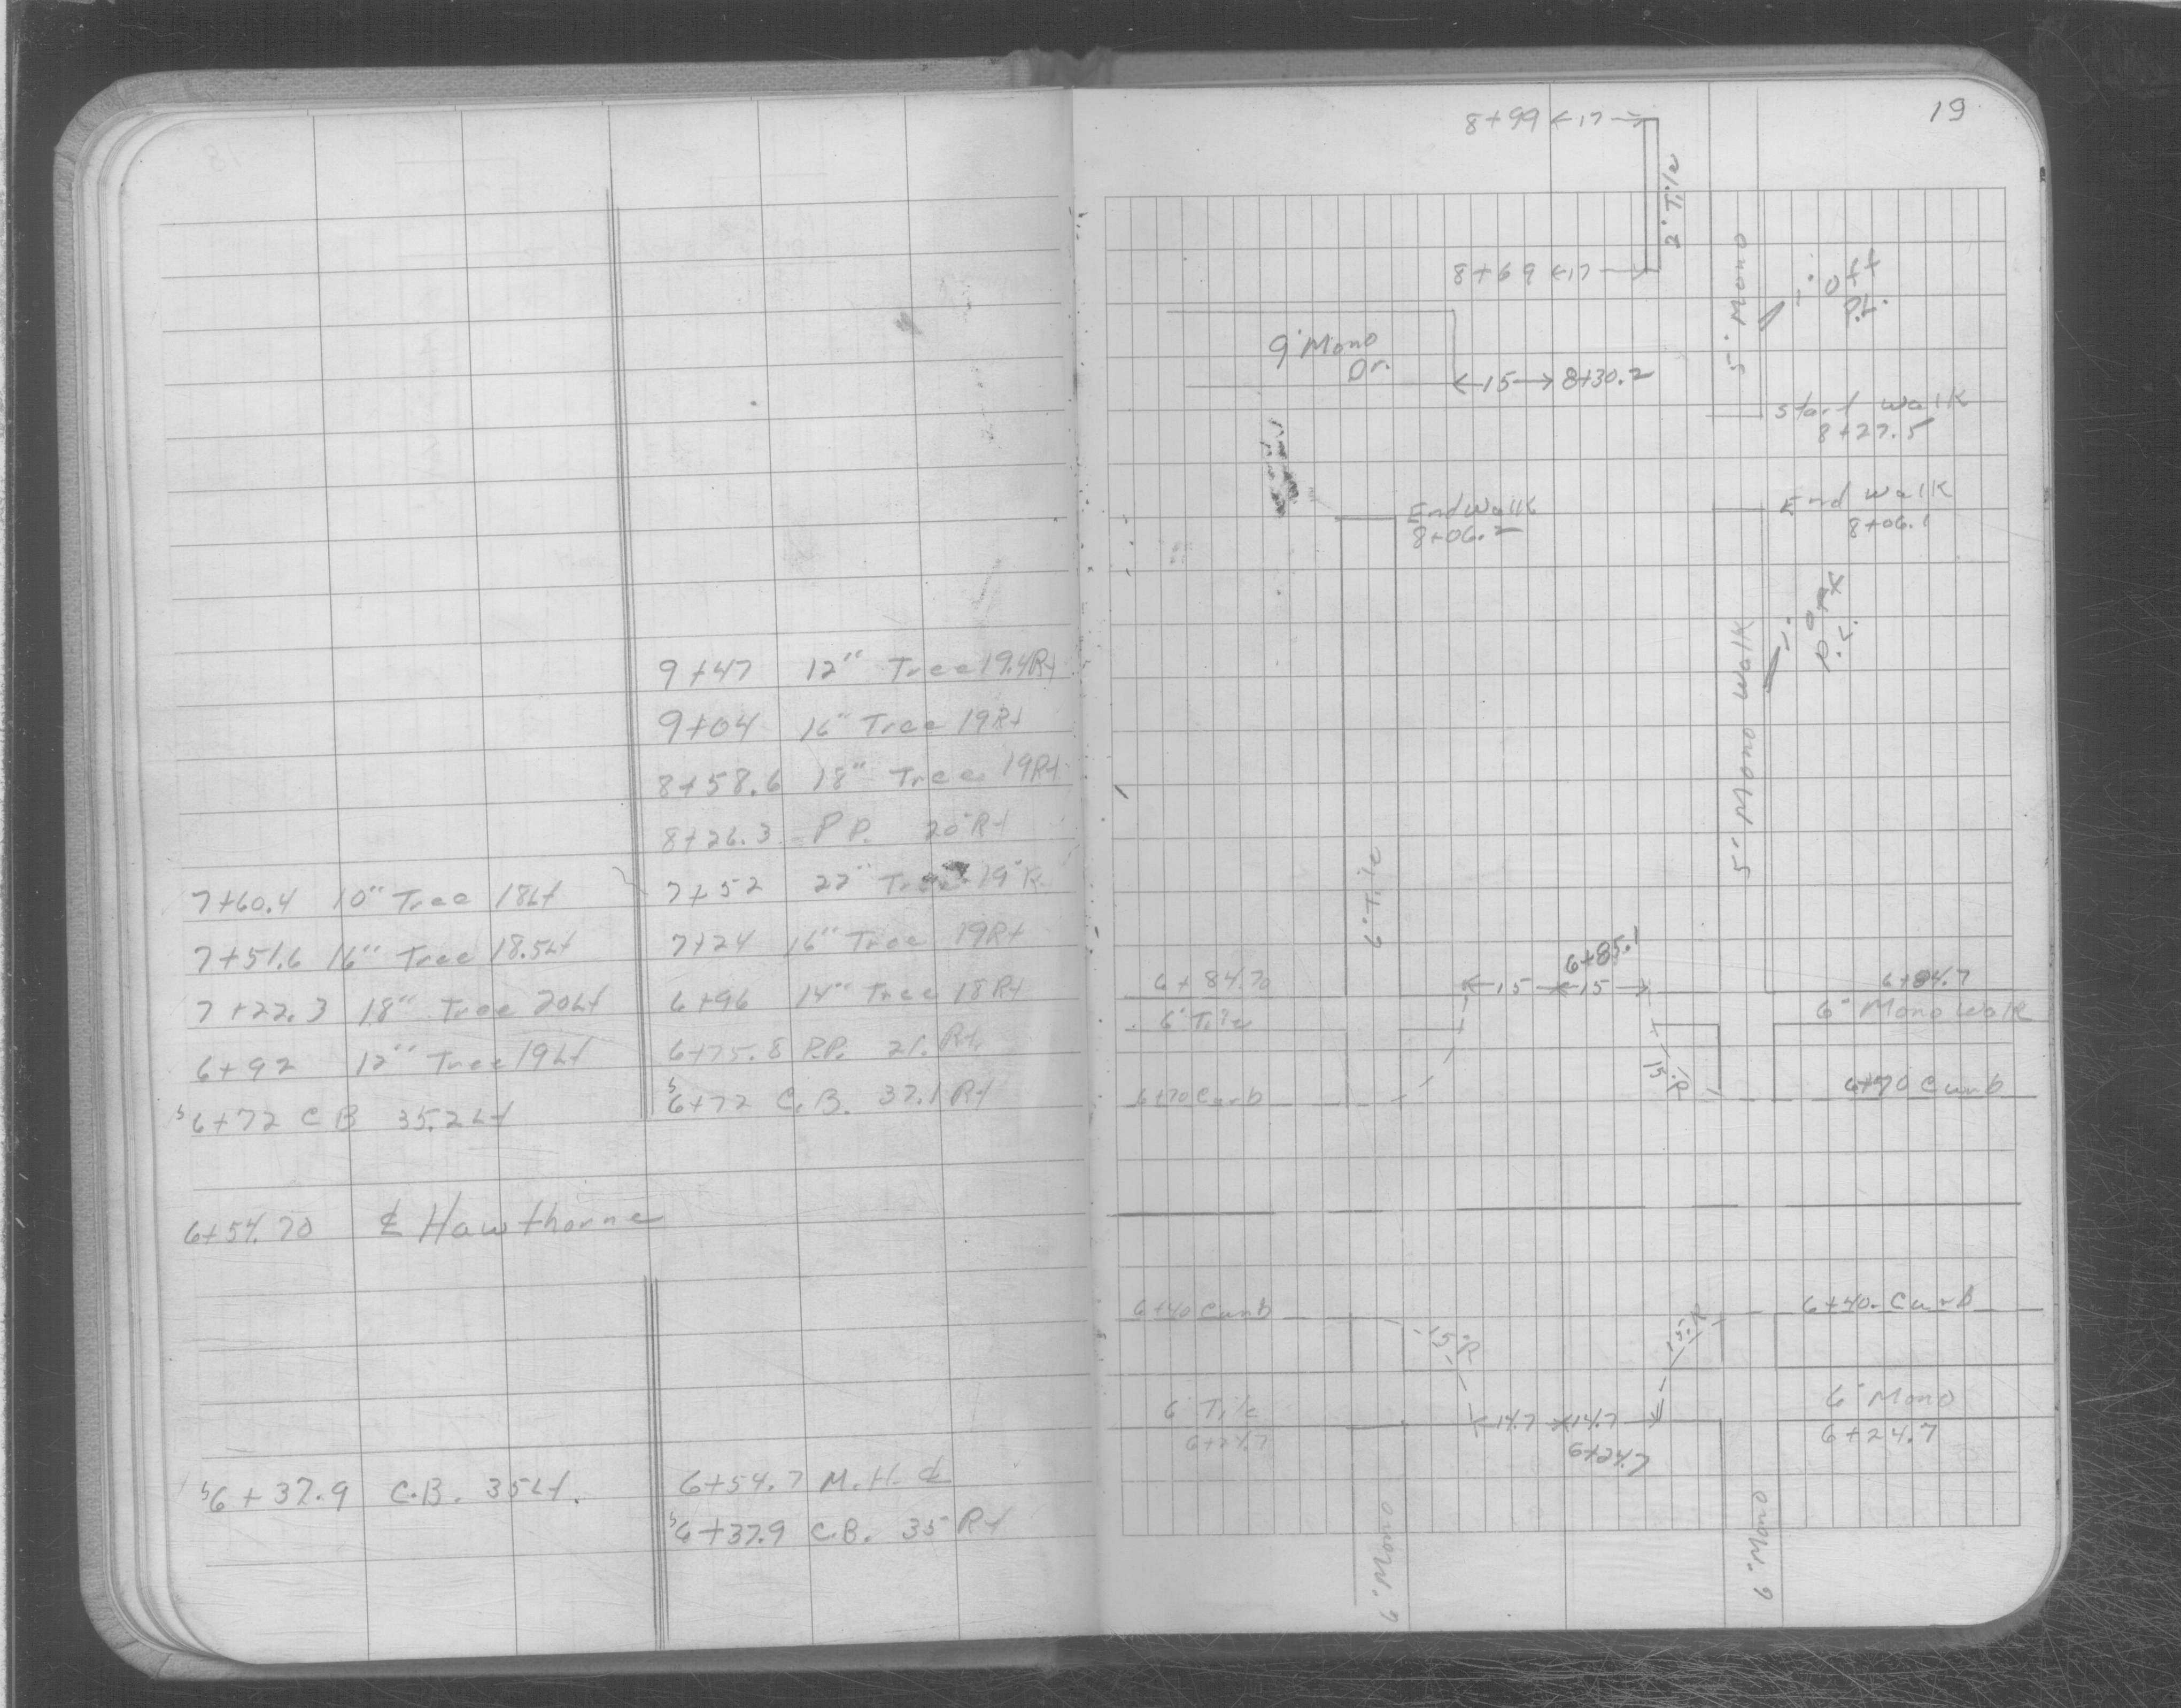 9+47 12" Tree 19.4Rt
9+04 16" Tree 19Rt
8+58.6 18" Tree 19Rt
8+26.3 P.P. 20'Rt
7+60.4 10" Tree 18Lt
7+52 22" Tree 19'R
7+51.6 16" Tree 18.5Lt
7+24 16" Tree 19Rt
7+22.3 18" Tree 20Lt
6+96 14" Tree 18Rt
6+92 12" Tree 19Lt
6+75.8 P.P. 21. Rt.
6+72 C B 35.2Lt
6+72 C.B. 37.1Rt
6+54.70 ℄ Hawthorne
6+37.9 C.B. 35Lt.
6+54.7 M.H. ℄
6+37.9 C.B. 35 Rt
19
8+99 ←17→
2' Tile
8+69 ←17→
5' Mono
1' off
P.L.
9' Mono
Dr.
←15→ 8+30.2
Start walk
8+27.5
End Walk
8+06.2
End walk
8+06.1
P.L.
5' Mono Walk
6' Tile
6+85.1
6+84.70
←15→←15→
6+84.7
6' Tile
6' Mono Walk
15'R
6+70 Curb
6+70 Curb
6+40 Curb
6+40 Curb
15'R
15'R
6' Tile
6+24.7
←14.7→←14.7→
6+24.7
6' Mono
6+24.7
6' Mono
6' Mono